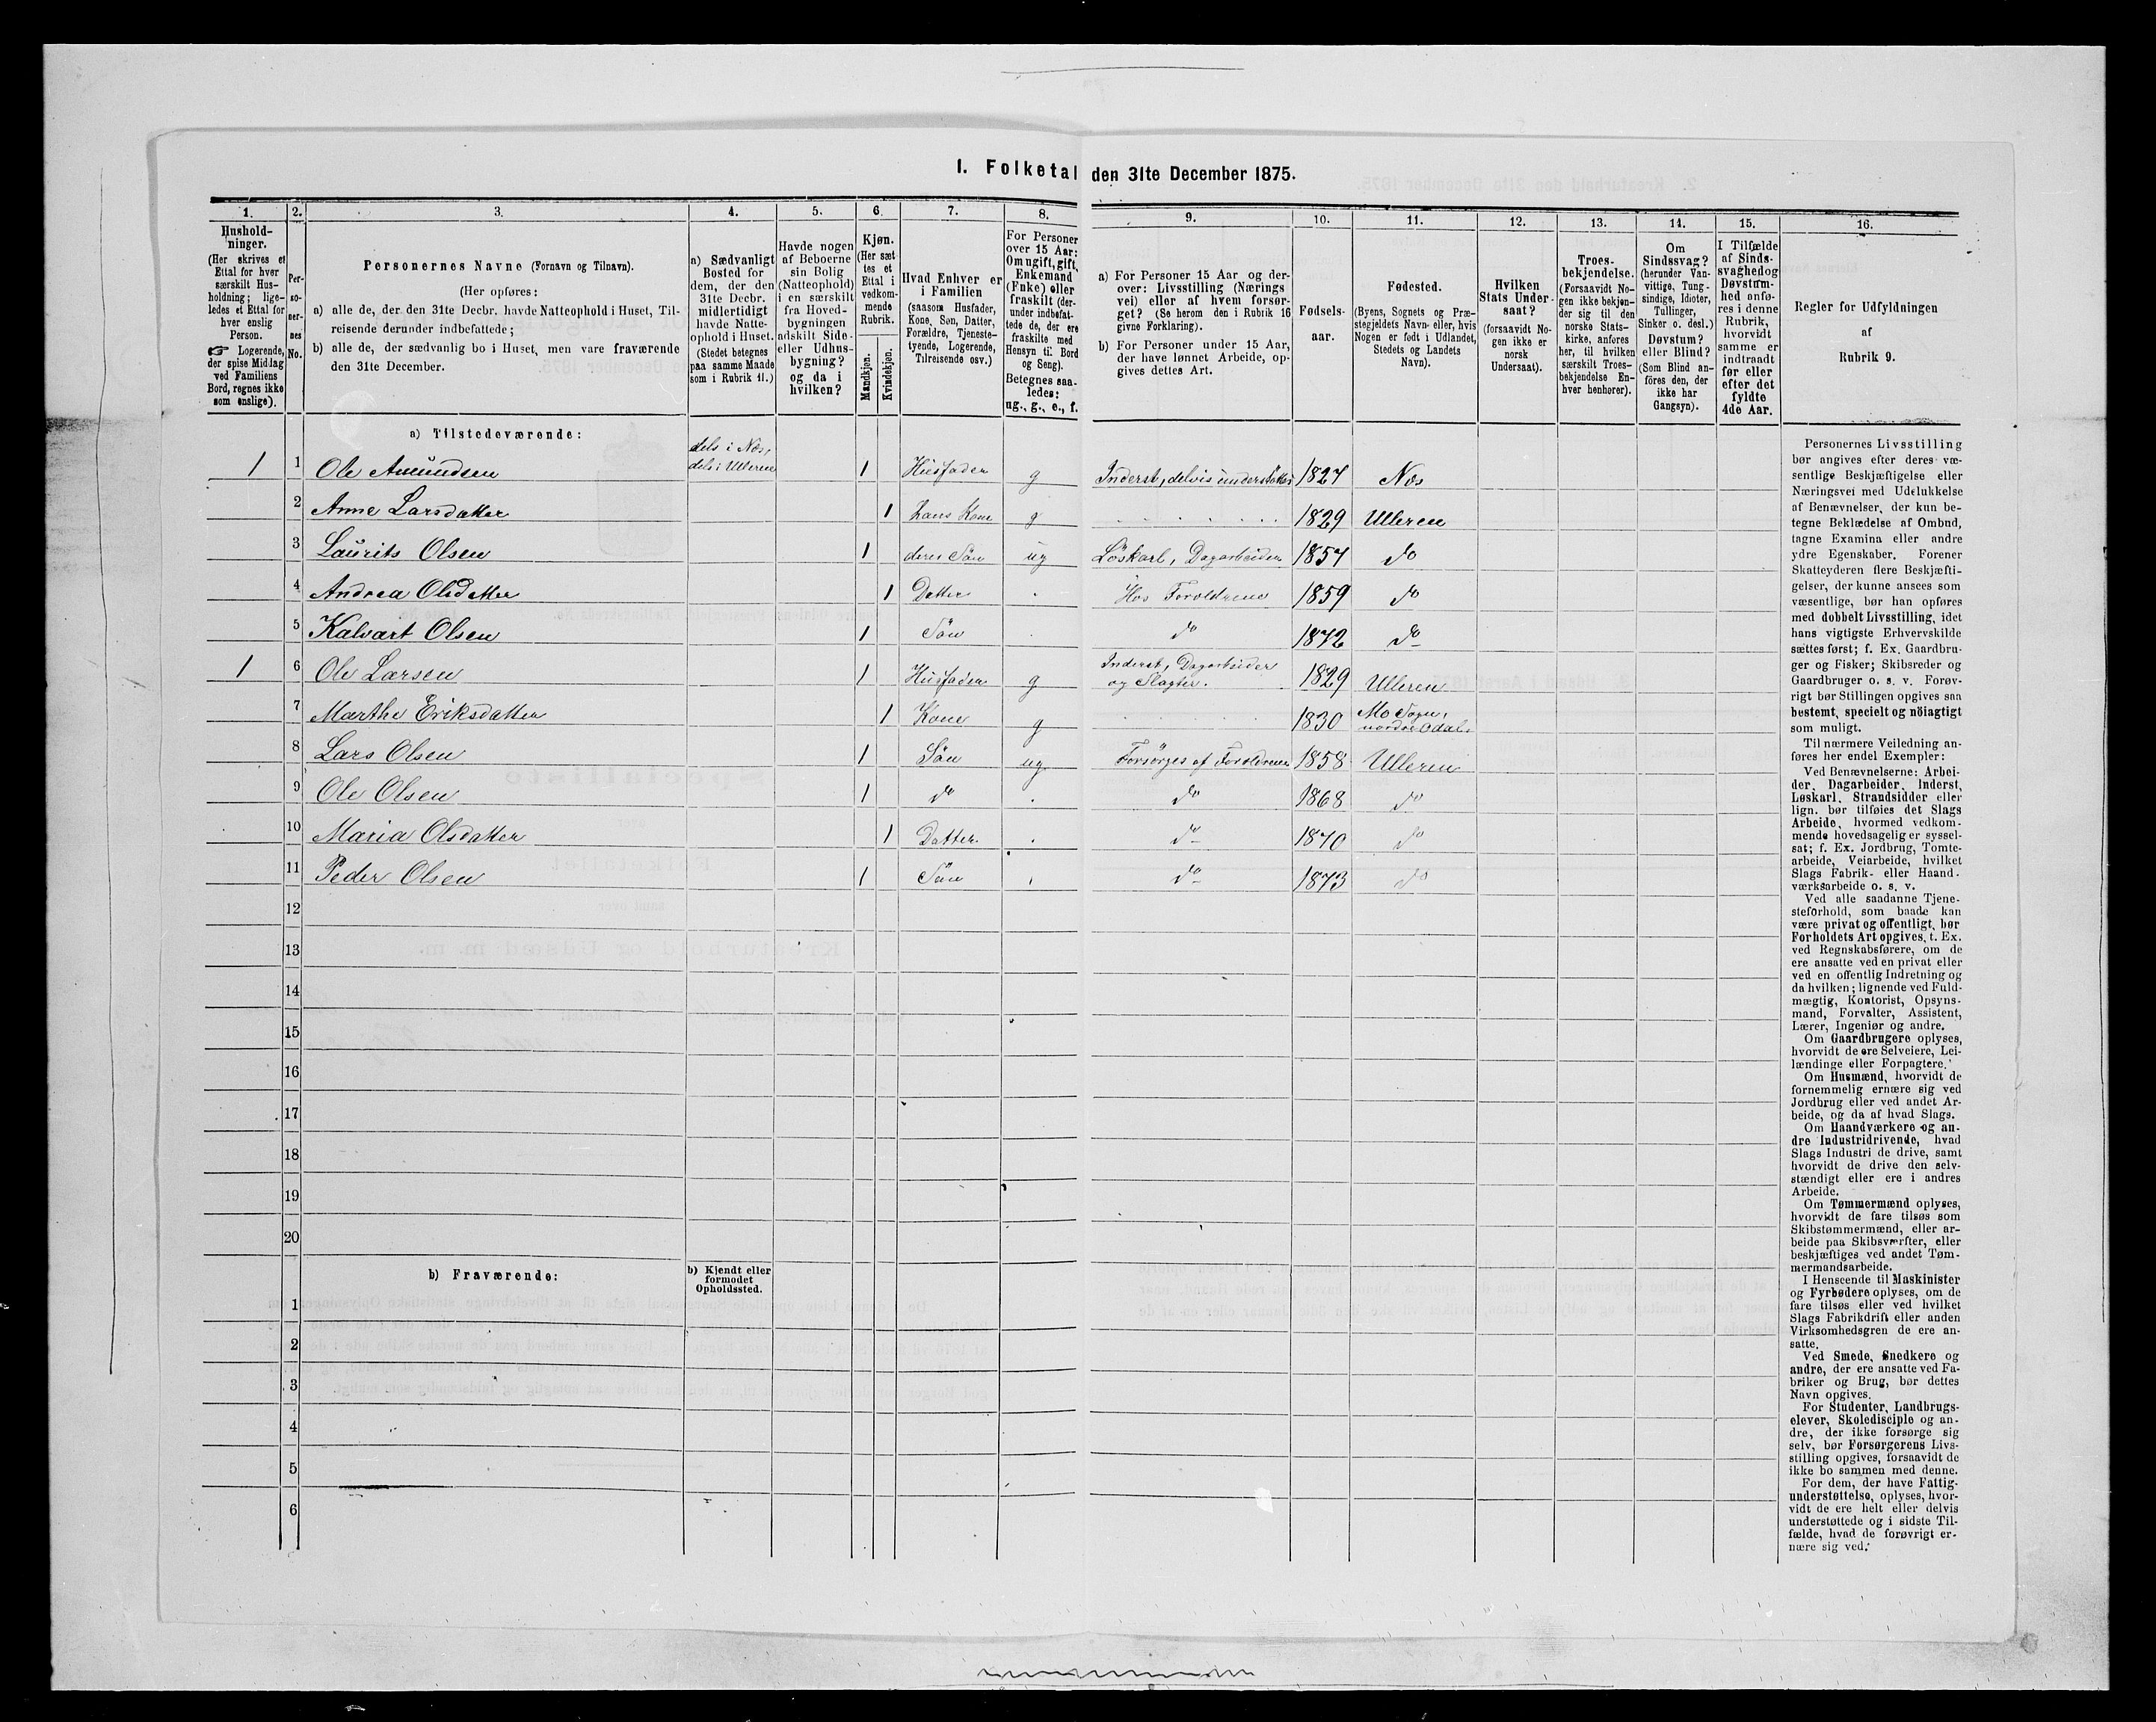 I. Folketal den 31te December 1875.
1.
Hushold-
ninger.
(Her skrives et
Ettal for hver
særskilt Hus-
holdning; lige-
ledes et Ettal for
hver enslig
Person.
☞ Logerende,
der spise Middag
ved Familiens
Bord, regnes ikke
som enslige).
2.
Per-
so-
ner-
nes
No.
3.
Personernes Navne (Fornavn og Tilnavn).
(Her opføres:
a) alle de, der den 31te Decbr. havde Natteophold i Huset, Til-
reisende derunder indbefattede;
b) alle de, der sædvanlig bo i Huset, men vare fraværende
den 31te December.
4.
a) Sædvanligt
Bosted for
dem, der den
31te Decbr.
midlertidigt
havde Natte-
ophold i Huset.
(Stedet betegnes
paa samme Maade
som i Rubrik 11.)
5.
Havde nogen
af Beboerne
sin Bolig
(Natteophold)
i en særskilt
fra Hoved-
bygningen
adskilt Side-
eller Udhus-
bygning?
og da i
hvilken?
6.
Kjøn.
(Her sæt
tes et
Ettal i
vedkom-
mende
Rubrik.
Mandkjøn.
Kvindekjøn.
7.
Hvad Enhver er
i Familien
(saasom Husfader,
Kone, Søn, Datter,
Forældre, Tjeneste-
tyende, Logerende,
Tilreisende osv.)
8.
For Personer
over 15 Aar:
Om ugift, gift,
Enkemand
(Enke) eller
fraskilt (der-
under indbefat-
tede de, der ere
fraskilte med
Hensyn til Bord
og Seng).
Betegnes saa-
ledes:
ug., g., e., f.
9.
a) For Personer 15 Aar og der-
over: Livsstilling (Nærings
vei) eller af hvem forsør-
get? (Se herom den i Rubrik 16
givne Forklaring).
b) For Personer under 15 Aar,
der have lønnet Arbeide, op-
gives dettes Art.
10.
Fødsels-
aar.
11.
Fødested.
(Byens, Sognets og Præ-
stegjeldets Navn eller, hvis
Nogen er født i Udlandet,
Stedets og Landets
Navn).
12.
Hvilken
Stats Under-
saat?
(forsaavidt No-
gen ikke er
norsk
Undersaat).
13.
Troes-
bekjendelse.
(Forsaavidt No-
gen ikke bekjen-
der sig til den
norske Stats-
kirke, anføres
her, til hvilken
særskilt Troes-
bekjendelse En-
hver henhører).
14.
Om
Sindssvag?
(herunder Van-
vittige, Tung-
sindige, Idioter,
Tullinger,
Sinker o. desl.)
Døvstum?
eller Blind?
(Som Blind an-
føres den, der
ikke har
Gangsyn).
15.
I Tilfælde
af Sinds-
svaghed og
Døvstum-
hed anfø-
res i denne
Rubrik,
hvorvidt
samme er
indtraadt
før eller
efter det
fyldte
4de Aar.
16.
Regler for Udfyldningen
af
Rubrik 9.
a) Tilstedeværende:
1 1 Ole Amundsen dels i Næs, dels i Ulleren 1 Husfader g Inderst, delvis understøttet 1827 Næs
2 Anne Larsdatter 1 hans Kone g 1829 Ulleren
3 Laurits Olsen 1 deres Søn ug Løskarl, Dagarbeider 1857 do
4 Andrea Olsdatter 1 Datter Hos Forældrene 1859 do
5 Kalvart Olsen 1 Søn do 1872 do
1 6 Ole Larsen 1 Husfader g Inderst, Dagarbeider og Slagter. 1829 Ulleren
7 Marthe Eriksdatter 1 Kone g 1830 Mo Sogn, nordre Odal.
8 Lars Olsen 1 Søn ug Forsørges af Forældrene 1858 Ulleren
9 Ole Olsen 1 do do 1868 do
10 Maria Olsdatter 1 Datter do 1870 do
11 Peder Olsen 1 Søn do 1873 do
12
13
14
15
16
17
18
19
20
b) Fraværende:
b) Kjendt eller
formodet
Opholdssted.
1
2
3
4
5
6
Personernes Livsstilling
bør angives efter deres væ-
sentlige Beskjæftigelse eller
Næringsvei med Udelukkelse
af Benævnelser, der kun be-
tegne Beklædelse af Ombud,
tagne Examina eller andre
ydre Egenskaber. Forener
Skatteyderen flere Beskjæfti-
gelser, der kunne ansees som
væsentlige, bør han opføres
med dobbelt Livsstilling, idet
hans vigtigste Erhvervskilde
sættes først; f. Ex. Gaardbru-
ger og Fisker; Skibsreder og
Gaardbruger o. s. v. Forøv-
rigt bør Stillingen opgives saa
bestemt, specielt og nöiagtigt
som muligt.
Til nærmere Veiledning an-
føres her endel Exempler:
Ved Benævnelserne: Arbei-
der, Dagarbeider, Inderst,
Løskarl, Strandsidder eller
lign. bør tilføies det Slags
Arbeide, hvormed vedkom-
mende hovedsagelig er syssel-
sat; f. Ex. Jordbrug, Tomte-
arbeide, Veiarbeide, hvilket
Slags Fabrik- eller Haand-
værksarbeide o. s. v.
Ved alle saadanne Tjene-
steforhold, som baade kan
være privat og offentligt, bør
Forholdets Art opgives, t. Ex.
ved Regnskabsførere, om de
ere ansatte ved en privat eller
ved en offentlig Indretning og
da hvilken; lignende ved Fuld-
mægtig, Kontorist, Opsyns-
mand, Forvalter, Assistent,
Lærer, Ingeniør og andre.
Om Gaardbrugere oplyses,
hvorvidt de ere Selveiere, Lei-
lændinge eller Forpagtere.
Om Husmænd, hvorvidt de
fornemmelig ernære sig ved
Jordbrug eller ved andet Ar-
beide, og da af hvad Slags.
Om Haandværkere og an-
dre Industridrivende, hvad
Slags Industri de drive, samt
hvorvidt de drive den selv-
stændigt eller ere i andres
Arbeide.
Om Tømmermænd oplyses,
hvorvidt de fare tilsøs som
Skibstømmermænd, eller ar-
beide paa Skibsværfter, eller
beskjæftiges ved andet Tøm-
mermandsarbeide.
I Henseende til Maskinister
og Fyrbødere oplyses, om de
fare tilsøs eller ved hvilket
Slags Fabrikdrift eller anden
Virksomhedsgren de ere an-
satte.
Ved Smede, Snedkere og
andre, der ere ansatte ved Fa-
briker og Brug, bør dettes
Navn opgives.
For Studenter, Landbrugs-
elever, Skoledisciple og an-
dre, der ikke forsørge sig
selv, bør Forsørgerens Livs-
stilling opgives, forsaavidt de
ikke bo sammen med denne.
For dem, der have Fattig-
understøttelse, oplyses, hvor-
vidt de ere helt eller delvis
understøttede og i sidste Til-
fælde, hvad de forøvrigt er-
nære sig ved.